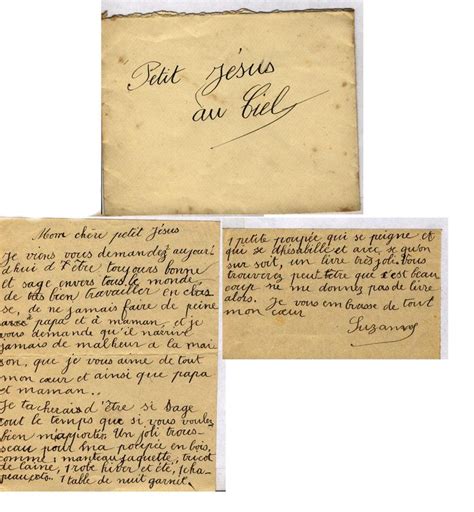 Petit Jésus
au Ciel
Mon chère petit Jésus
Je viens vous demandez aujour
d'hui d'être toujours bonne
et sage envers tous le monde,
de bien travailler en clas
se, de ne jamais faire de peine
avec papa et à maman, et je
vous demande qu'il n'arrive
jamais de malheur a la mai
son, que je vous aime de tout
mon cœur et ainsie que papa
et maman..
Je tacherais d'être si sage
tout le temps que si vous voulez
bien m'apporter Un joli trous-
seau pour ma poupée en bois,
comme: manteau, jaquette, tricot
de laine, 1 robe hiver et été, 1 cha-
peau, 1 table de nuit garnit,
1 petite poupée qui se peigne et
qui se dhisabille et avec se qu'on
sur soit, un livre très joli. Vous
trouverez peut être que c'est beau
coup ne me donnez pas de livre
alors. Je vous embrasse de tout
mon cœur
Suzanne